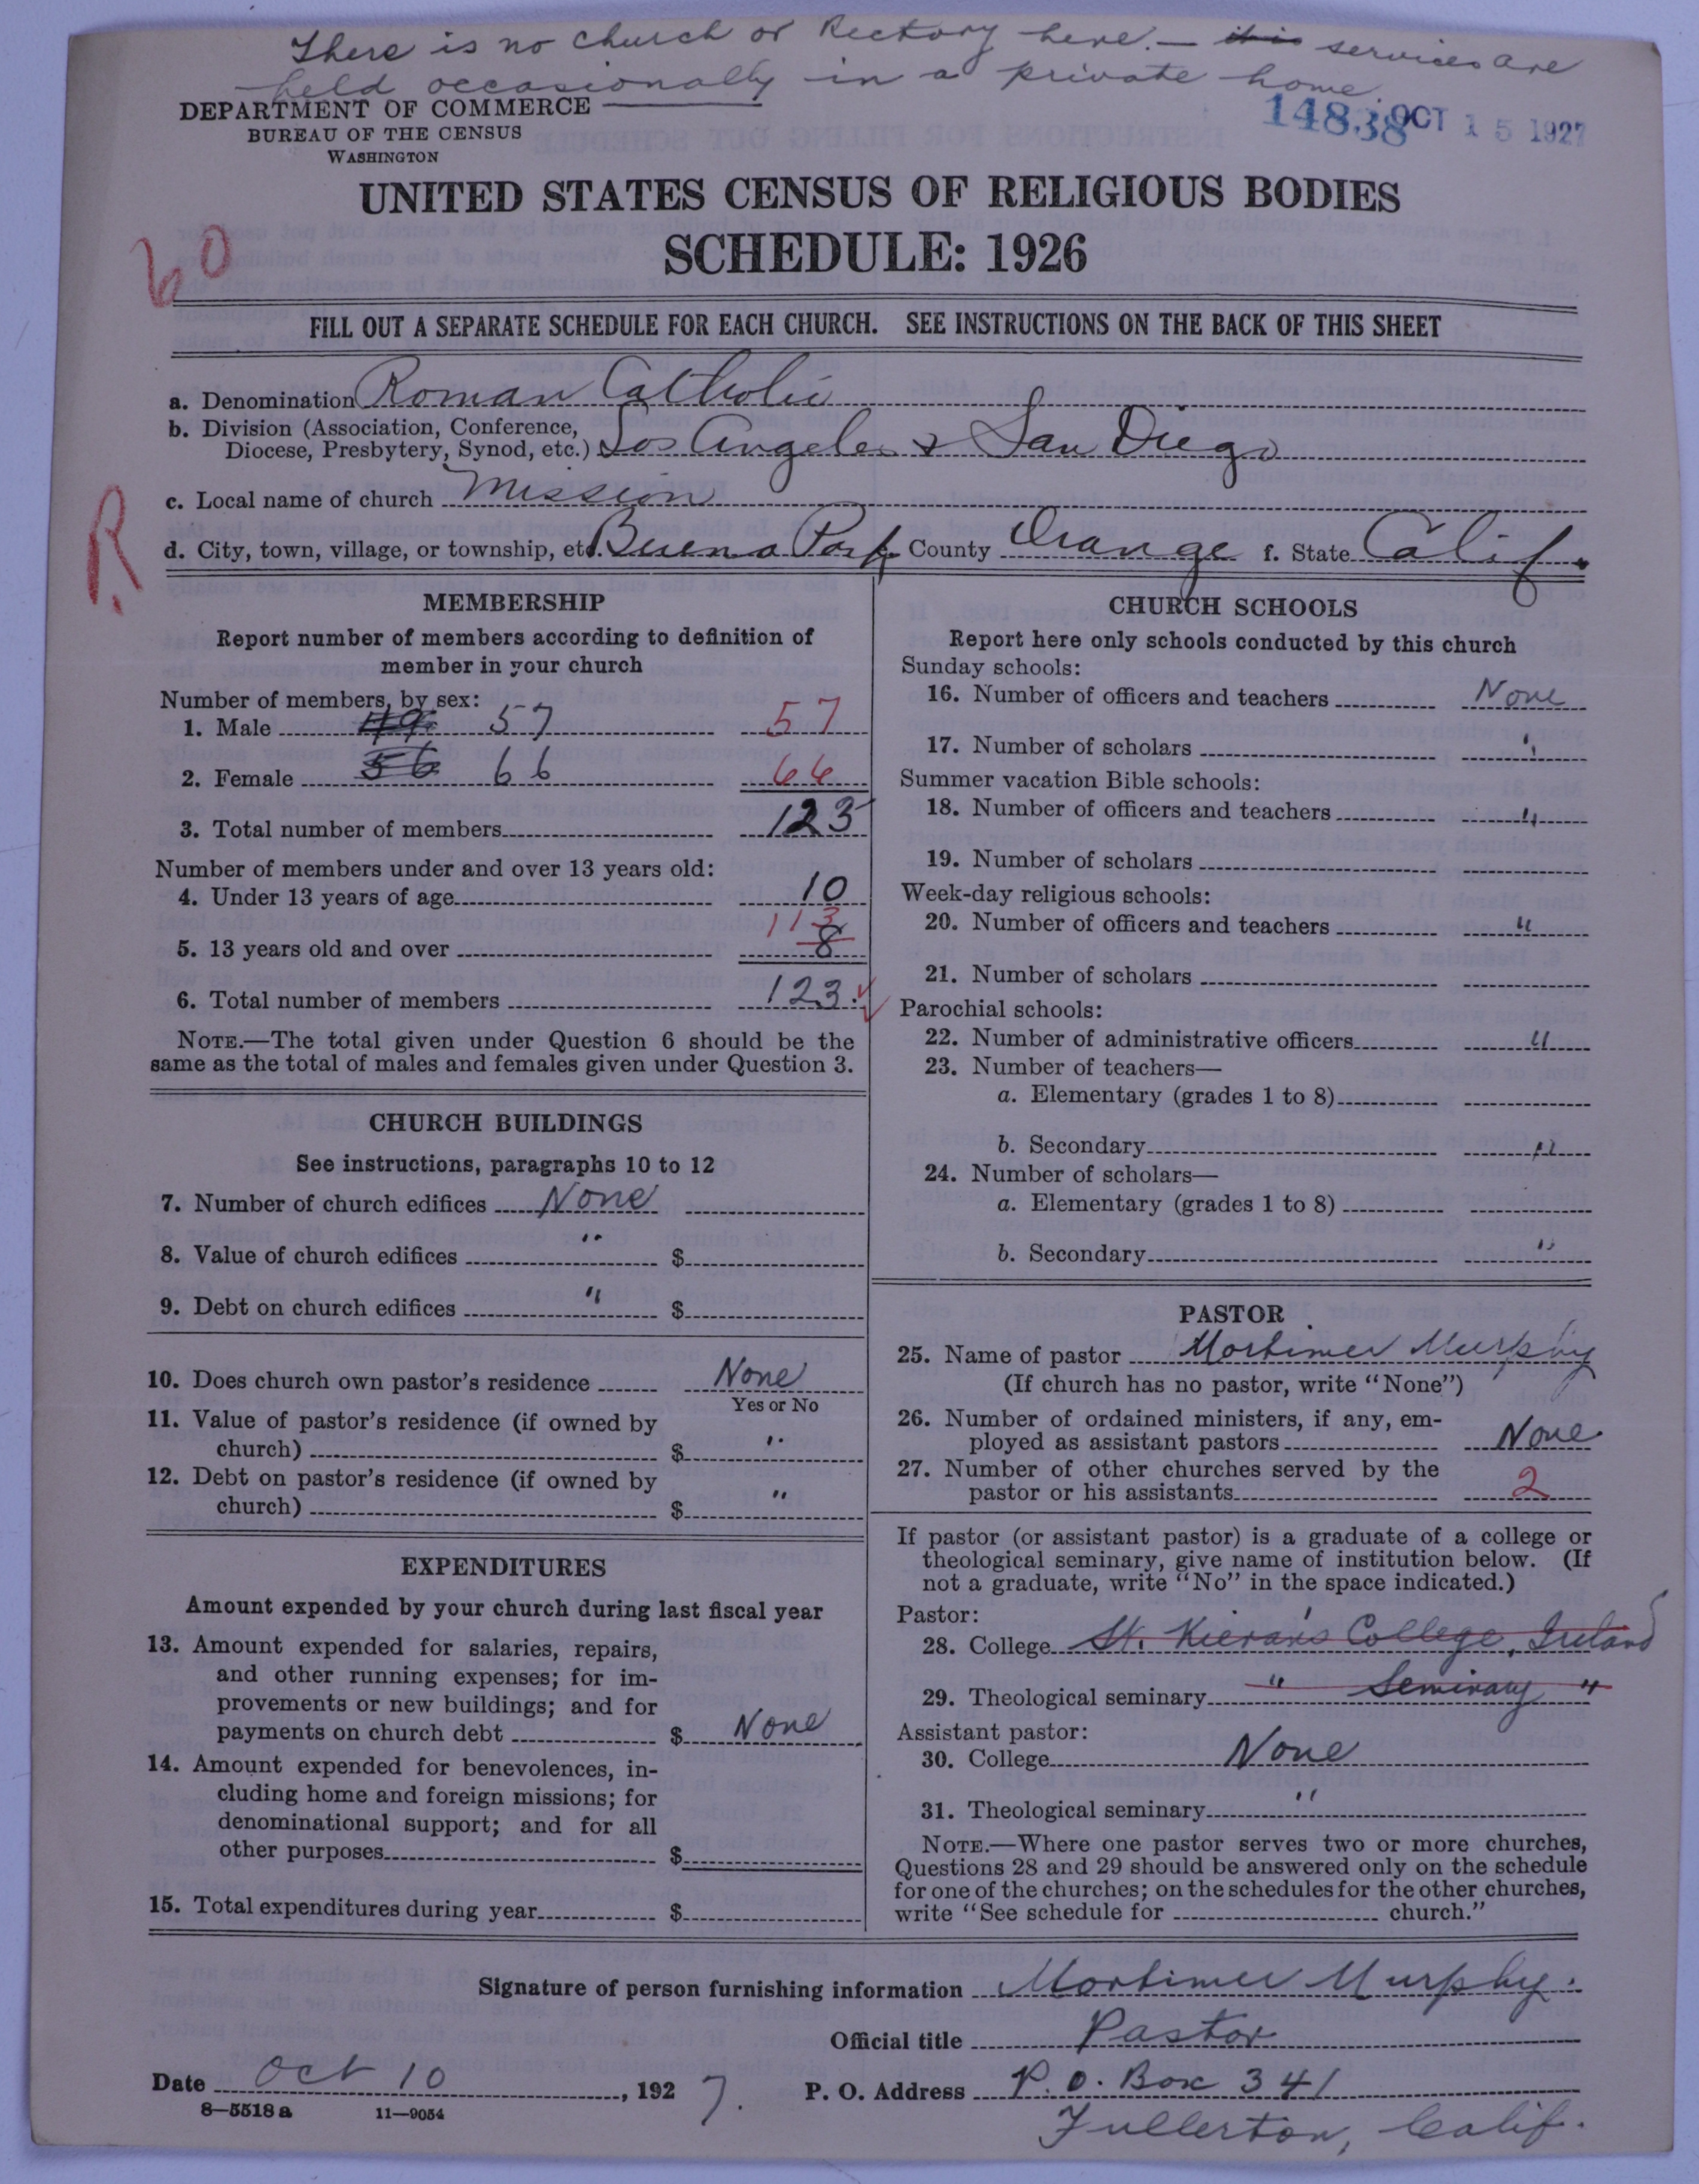 There is no church or Rectory here. — this services are
held occasionally in a private home.
DEPARTMENT OF COMMERCE
BUREAU OF THE CENSUS
WASHINGTON
14838 OCT 15 1927
UNITED STATES CENSUS OF RELIGIOUS BODIES
SCHEDULE: 1926
60
FILL OUT A SEPARATE SCHEDULE FOR EACH CHURCH. SEE INSTRUCTIONS ON THE BACK OF THIS SHEET
a. Denomination Roman Catholic
b. Division (Association, Conference,
Diocese, Presbytery, Synod, etc.) Los Angeles & San Diego
c. Local name of church Mission
R
d. City, town, village, or township, etc. Buena Park County Orange f. State Calif.
MEMBERSHIP
Report number of members according to definition of
member in your church
Number of members, by sex:
1. Male 49 57 57
2. Female 56 66 66
3. Total number of members 123
Number of members under and over 13 years old:
4. Under 13 years of age 10
113
5. 13 years old and over 8
6. Total number of members 123.
NOTE.—The total given under Question 6 should be the
same as the total of males and females given under Question 3.
CHURCH BUILDINGS
See instructions, paragraphs 10 to 12
7. Number of church edifices None
8. Value of church edifices " $
9. Debt on church edifices " $
10. Does church own pastor's residence None
Yes or No
11. Value of pastor's residence (if owned by
church) $ "
12. Debt on pastor's residence (if owned by
church) $ "
EXPENDITURES
Amount expended by your church during last fiscal year
13. Amount expended for salaries, repairs,
and other running expenses; for im-
provements or new buildings; and for
payments on church debt $ None
14. Amount expended for benevolences, in-
cluding home and foreign missions; for
denominational support; and for all
other purposes $
15. Total expenditures during year $
CHURCH SCHOOLS
Report here only schools conducted by this church
Sunday schools:
16. Number of officers and teachers None
17. Number of scholars "
Summer vacation Bible schools:
18. Number of officers and teachers "
19. Number of scholars
Week-day religious schools:
20. Number of officers and teachers "
21. Number of scholars
Parochial schools:
22. Number of administrative officers "
23. Number of teachers—
a. Elementary (grades 1 to 8)
b. Secondary "
24. Number of scholars—
a. Elementary (grades 1 to 8)
b. Secondary "
PASTOR
25. Name of pastor Mortimer Murphy
(If church has no pastor, write "None")
26. Number of ordained ministers, if any, em-
ployed as assistant pastors None
27. Number of other churches served by the
pastor or his assistants 2
If pastor (or assistant pastor) is a graduate of a college or
theological seminary, give name of institution below. (If
not a graduate, write "No" in the space indicated.)
Pastor:
28. College St. Kieran's College, Ireland
29. Theological seminary " Seminary "
Assistant pastor:
30. College None
31. Theological seminary "
NOTE.—Where one pastor serves two or more churches,
Questions 28 and 29 should be answered only on the schedule
for one of the churches; on the schedules for the other churches,
write "See schedule for church."
Signature of person furnishing information Mortimer Murphy.
Official title Pastor
Date Oct 10, 1927. P. O. Address P.O. Box 341
8—5518a 11—9054
Fullerton, Calif.